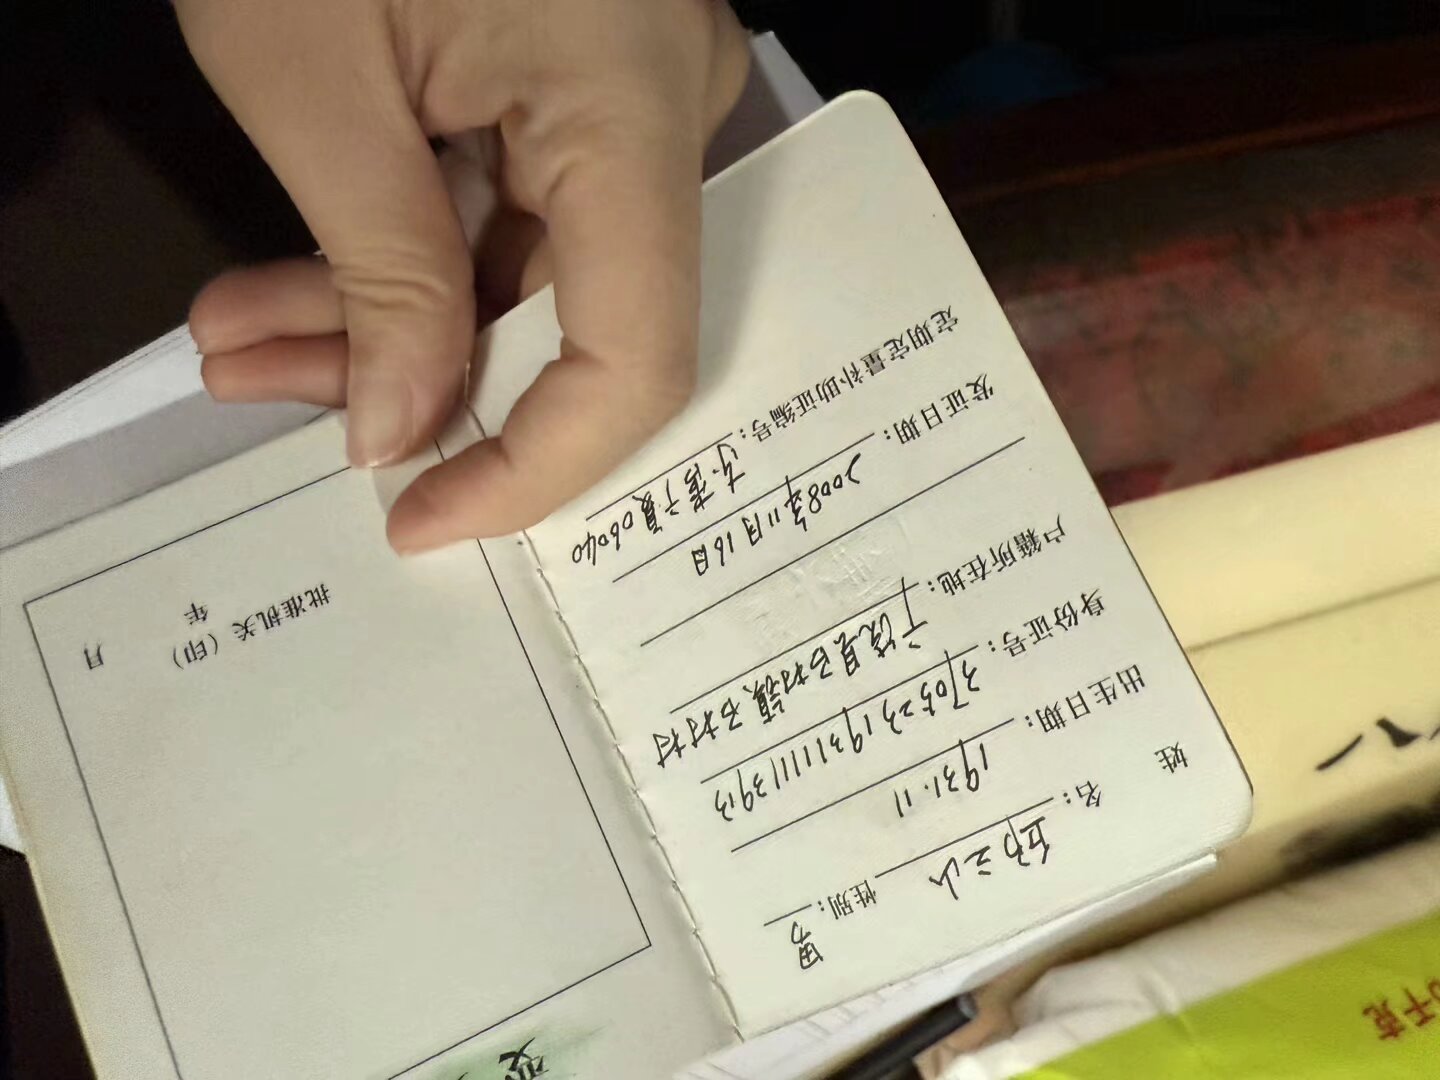 姓 名：  山 性别：男
出生日期：1931.11
身份证号：370523193111113913
户籍所在地：广饶县石村镇石村村
发证日期：2008年11月16日
定期定量补助证编号：东 字 06040
批准机关（印）
年 月
千克